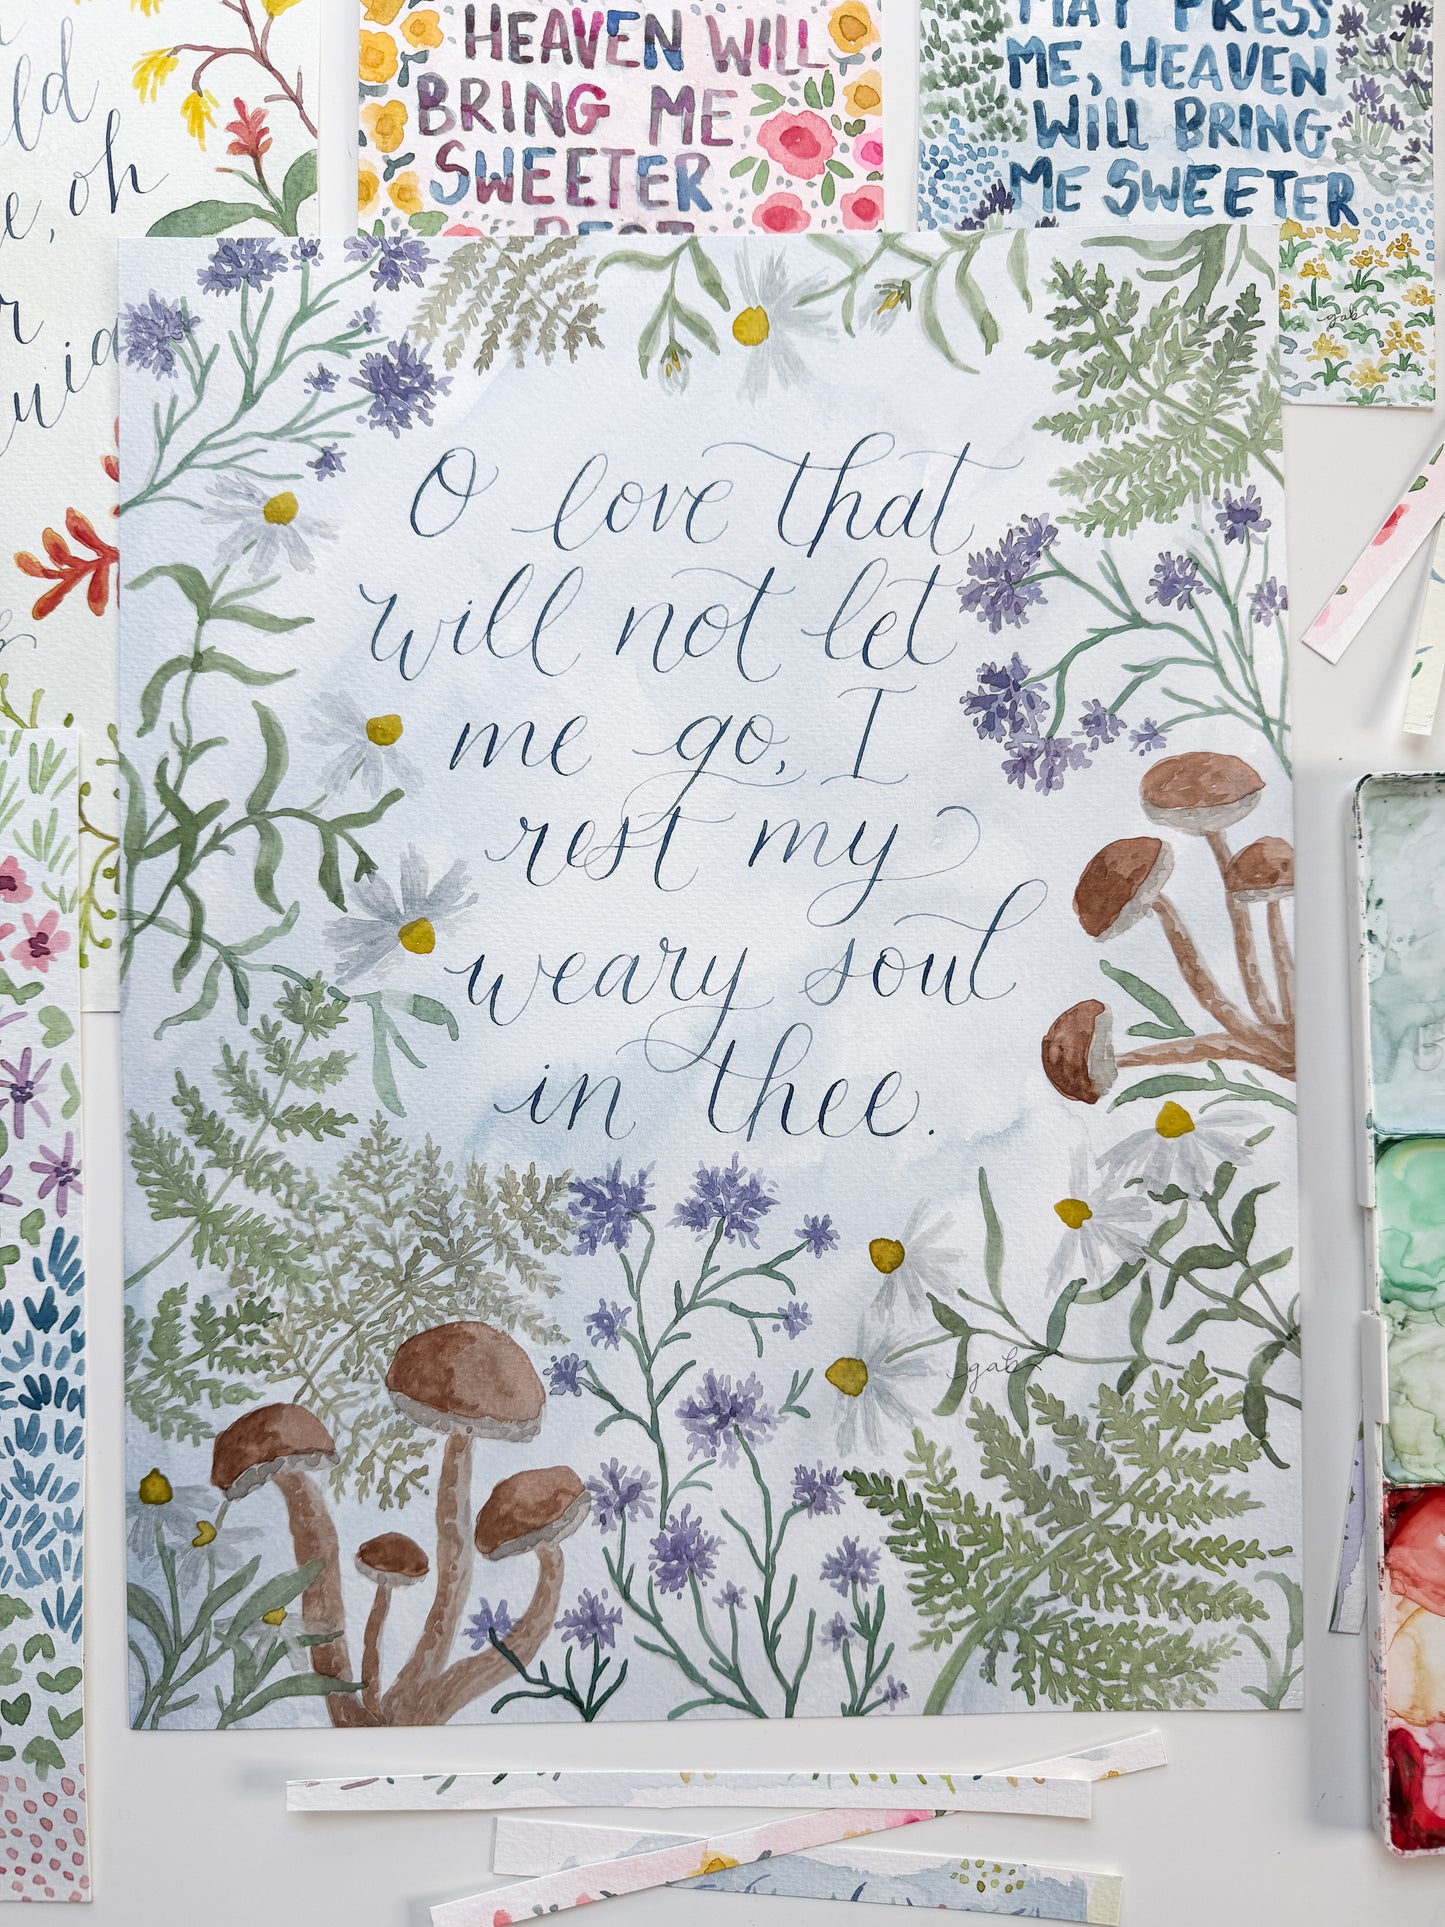 ld
e, oh
r
HEAVEN WILL
BRING ME
SWEETER
REST
MAY PRESS
ME, HEAVEN
WILL BRING
ME SWEETER
gab
O love that
will not let
me go, I
rest my
weary soul
in thee.
gab